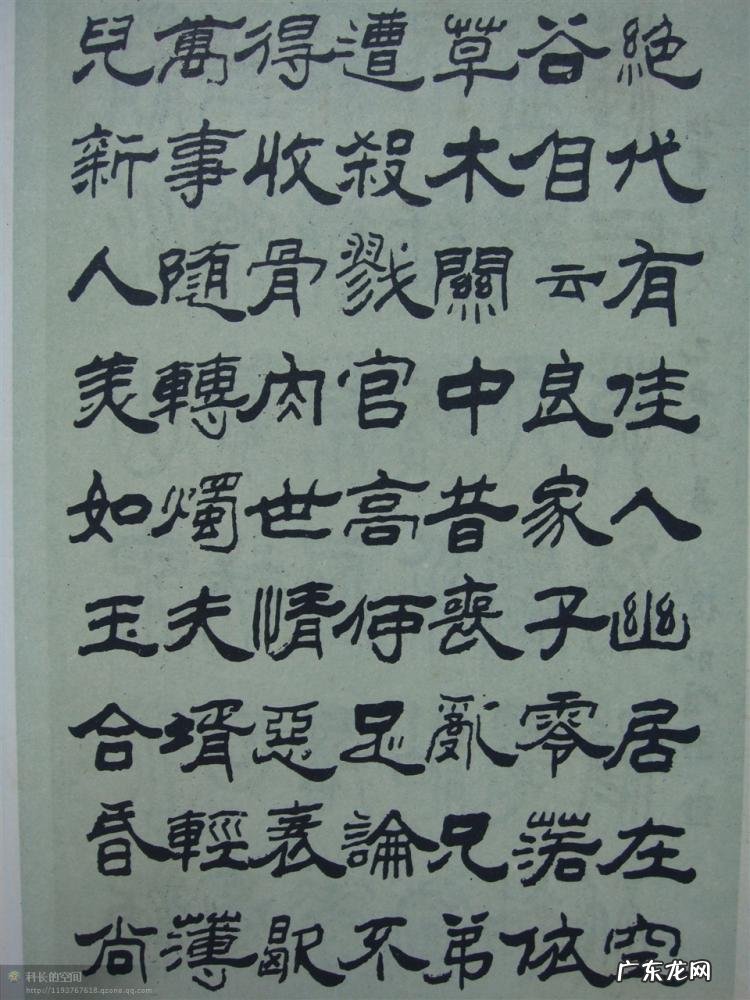 絕代有佳人幽居在空
谷自云良家子零落依
草木關中昔喪亂兄弟
遭殺戮官高何足論不
得收骨肉世情惡衰歇
萬事隨轉燭夫壻輕薄
兒新人美如玉合昏尚
科长的空间
http://1193767618.qzone.qq.com
广东龙网